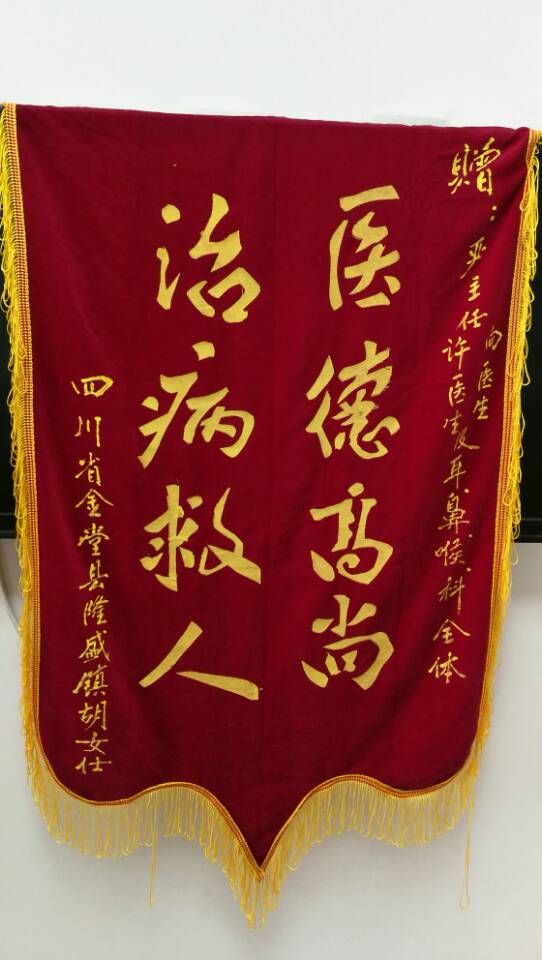 赠：严主任许医生及耳、鼻、喉、科全体
向医生
医德高尚
治病救人
四川省金堂县隆盛镇胡女仕